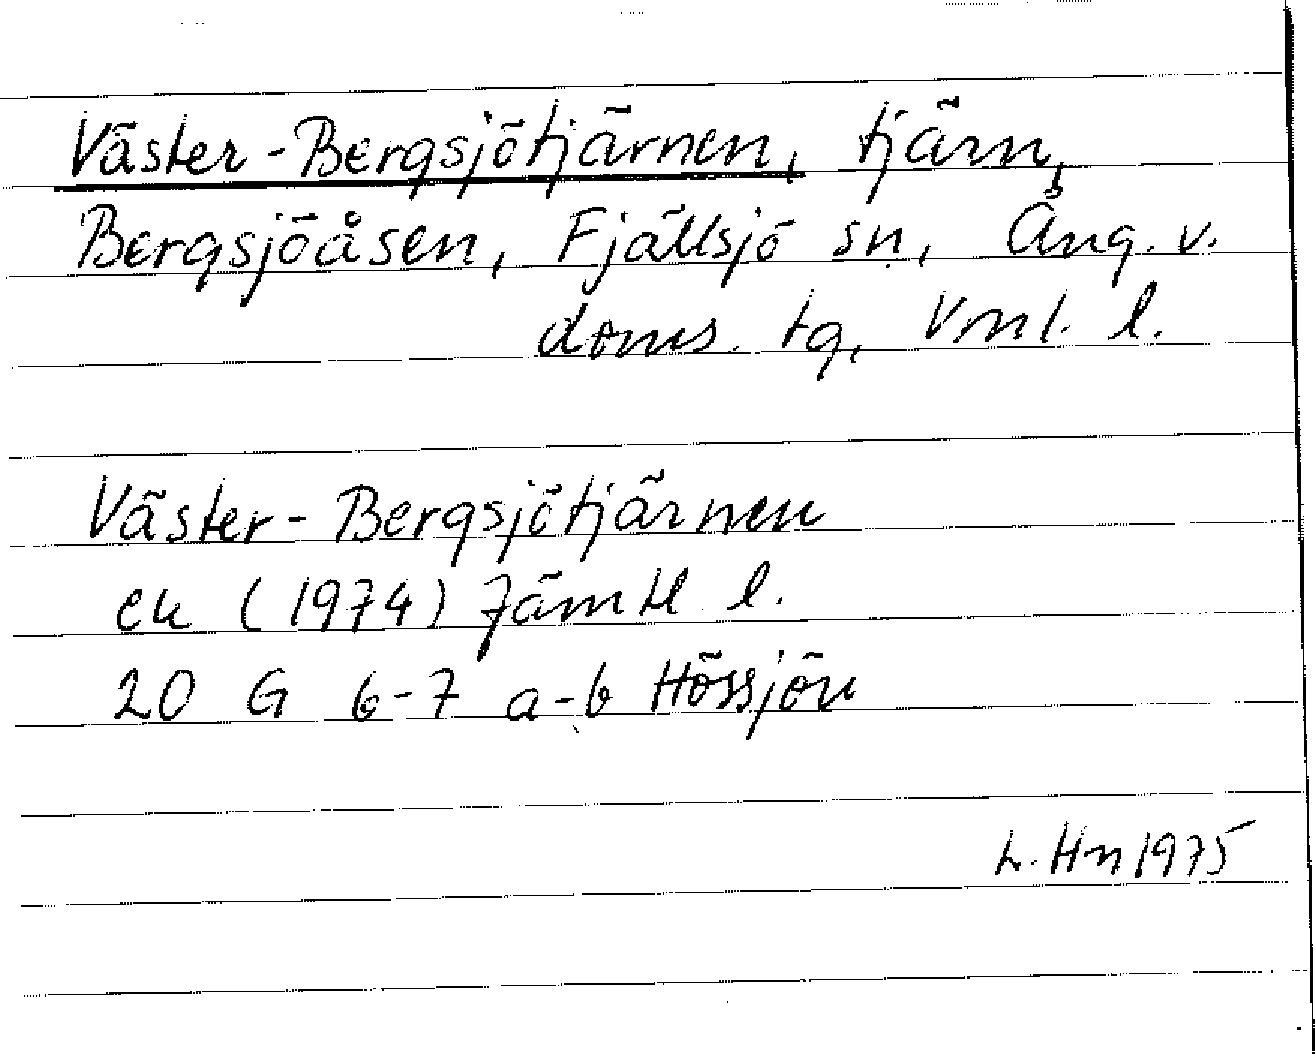 Väster-Bergsjötjärnen, tjärn,
Bergsjöåsen, Fjällsjö sn, Ång. v.
doms. tg, Vnl. l.
Väster-Bergsjötjärnen
ek (1974) Jämtl l.
20 G 6-7 a-b Hössjön
L. Hn 1975